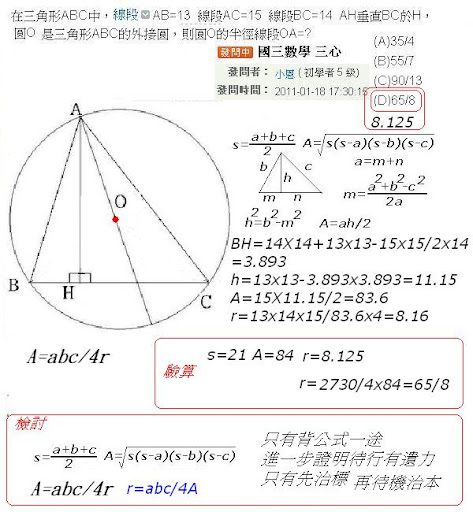 在三角形ABC中，線段 AB=13 線段AC=15 線段BC=14 AH垂直BC於H，
圓O 是三角形ABC的外接圓，則圓O的半徑線段OA=?
發問中 國三數學 三心
發問者： 小恩 ( 初學者 5 級)
發問時間： 2011-01-18 17:30:15
(A)35/4
(B)55/7
(C)90/13
(D)65/8
8.125
s=a+b+c/2 A=√s(s-a)(s-b)(s-c)
b c a=m+n
h m=a²+b²-c²/2a
m n
h²=b²-m² A=ah/2
BH=14X14+13x13-15x15/2x14
=3.893
h=13x13-3.893x3.893=11.15
A=15X11.15/2=83.6
r=13x14x15/83.6x4=8.16
A
O
B H C
A=abc/4r
驗算 s=21 A=84 r=8.125
r=2730/4x84=65/8
檢討
s=a+b+c/2 A=√s(s-a)(s-b)(s-c)
A=abc/4r r=abc/4A
只有背公式一途
進一步證明待行有遺力
只有先治標 再待機治本